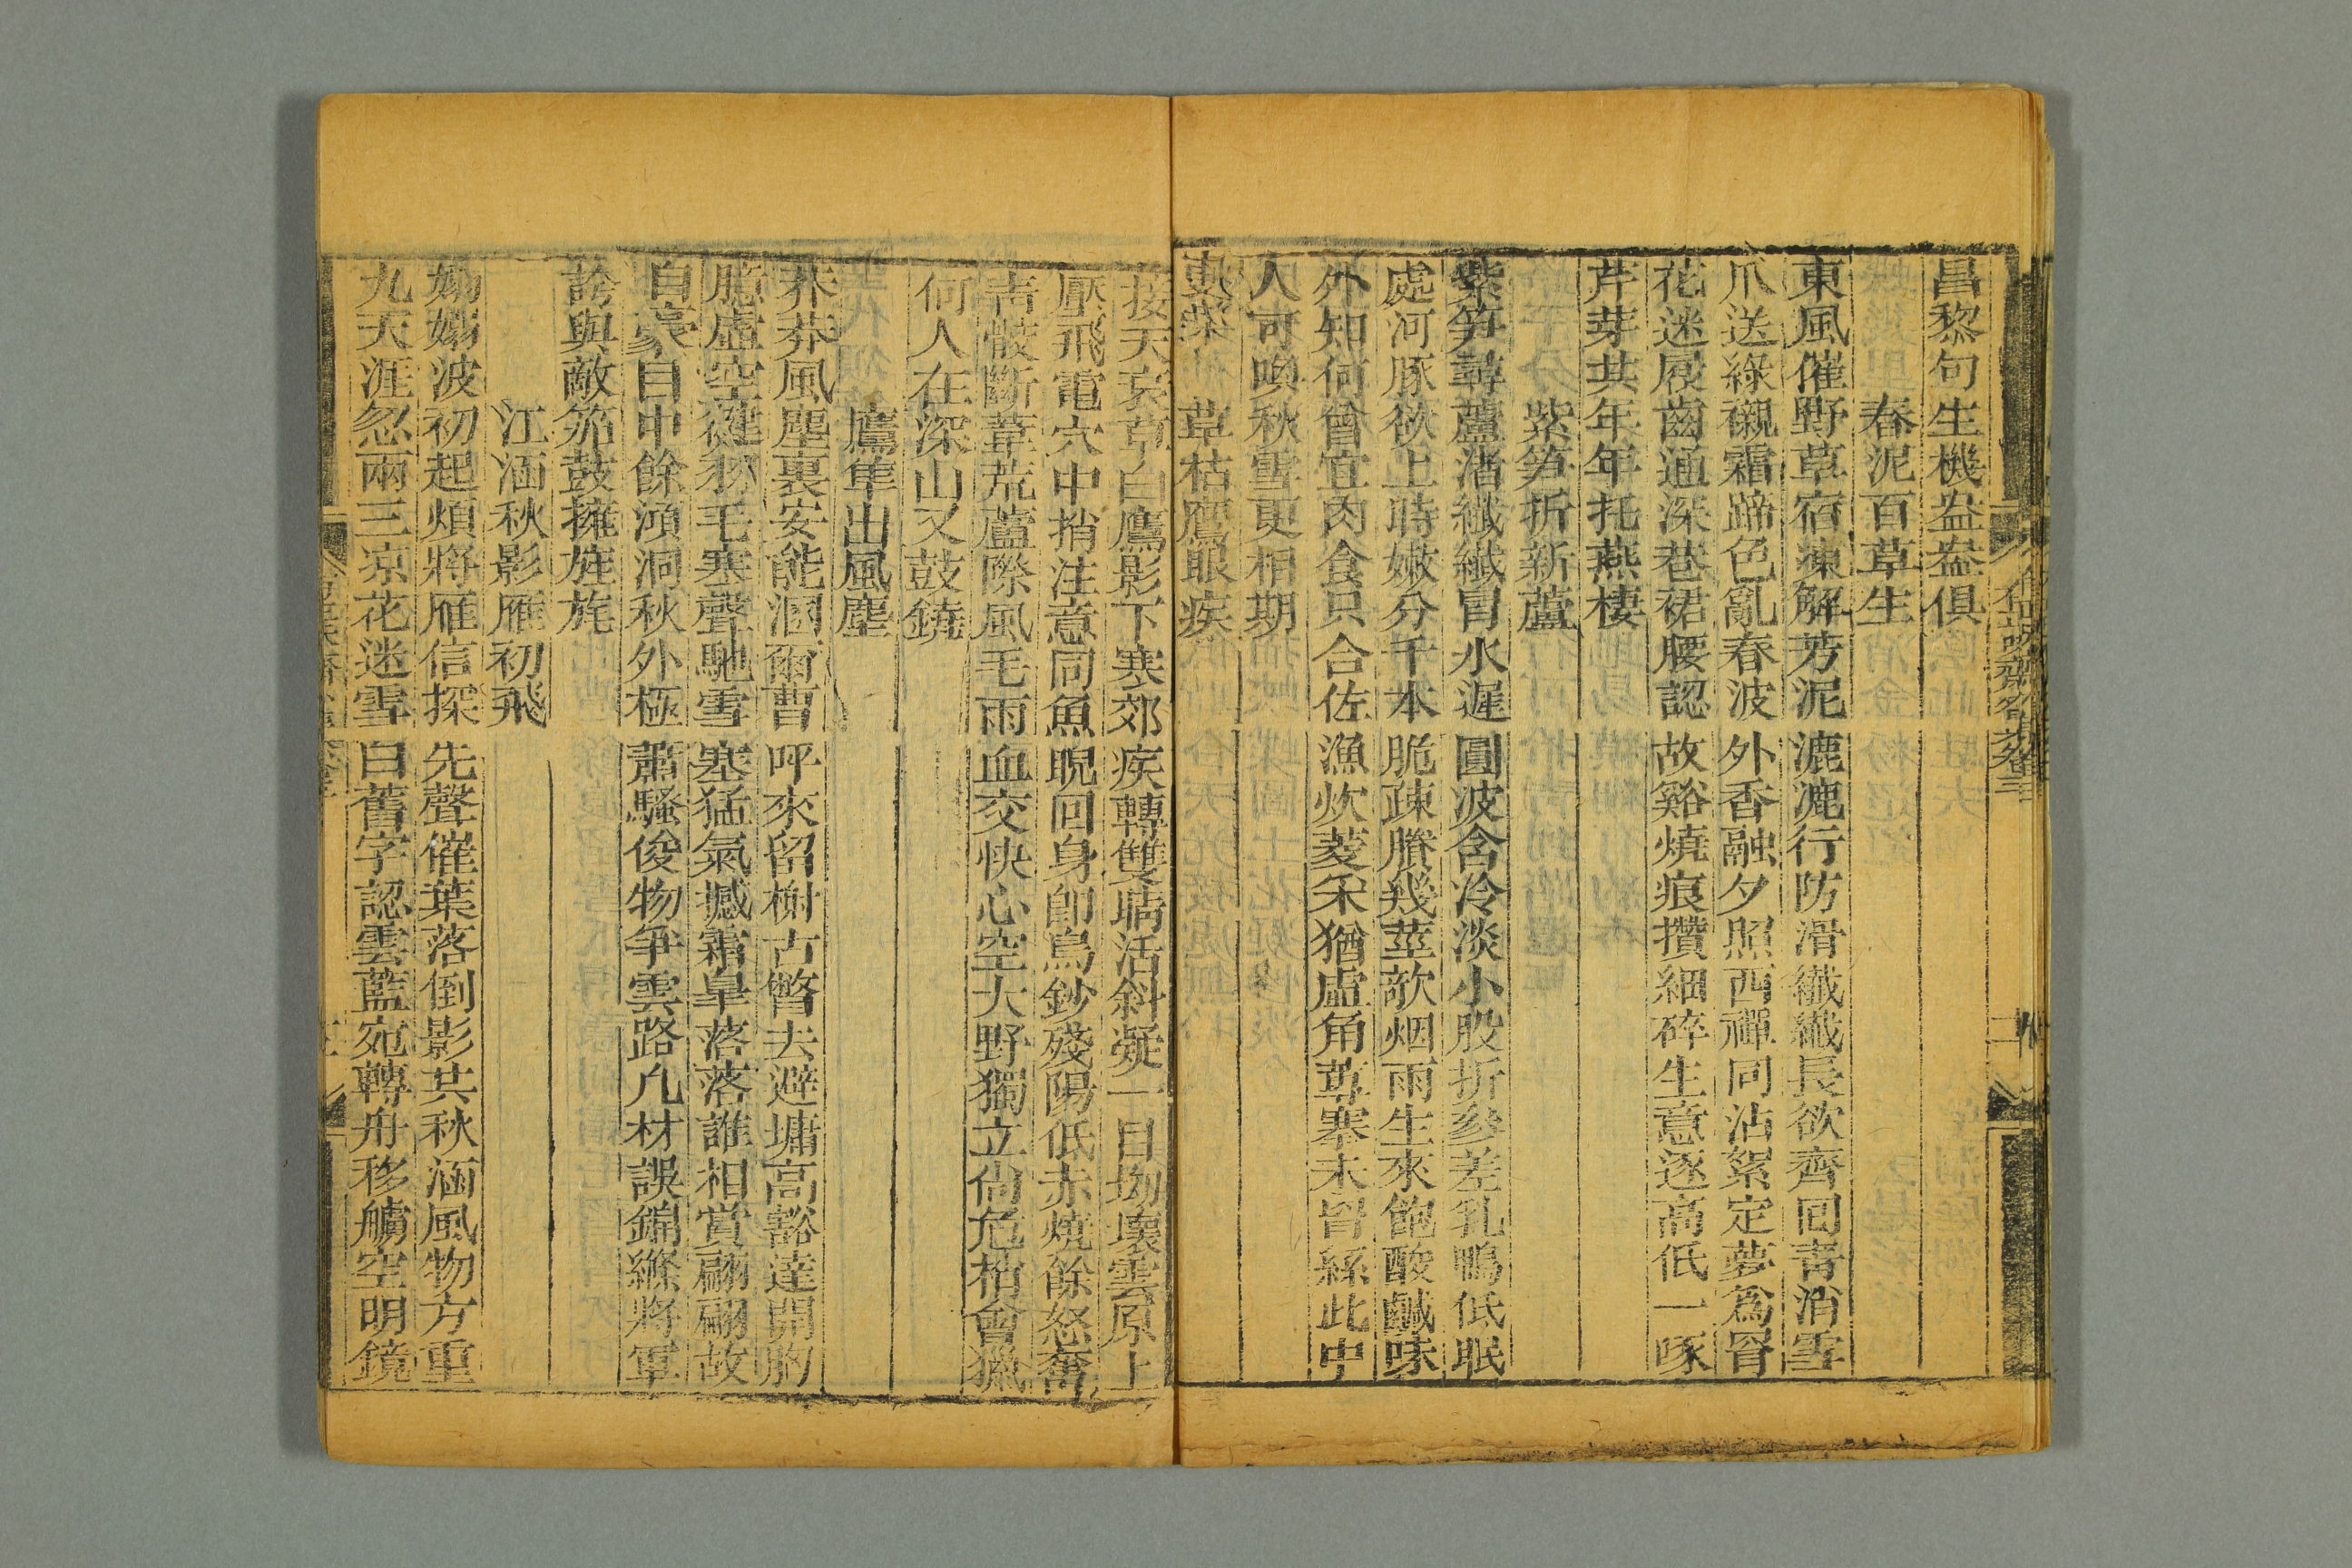 昌黎句生機盎盎俱
春泥百草生
東風催野草宿凍解芳泥漉漉行防滑纖纖長欲齊回青消雪
爪送綠襯霜蹄色亂春波外香融夕照西禪同沾絮定夢爲
花迷屐齒通深巷裙腰認故谿燒痕攢細碎生意逐高低一啄
芹芽共年年托燕棲
紫笋折新蘆
紫笋尋蘆渚纖纖冒水遲圓波含冷淡小股折參差乳鴨低眠
處河豚欲上時嫩分千本脆疎賸幾莖欹烟雨生來飽酸鹹味
外知何曾宜肉食只合佐漁炊菱采猶虛角蓴搴未冒絲此中
人可喚秋雪更相期
草枯鷹眼疾
接天衰草白鷹影下寒郊疾轉雙睛活斜凝一目坳壞雲原上
壓飛電穴中捎注意同魚睨回身卽鳥鈔殘陽低赤燒餘怒奮
青骹斷葦荒蘆際風毛雨血交快心空大野獨立尙危梢會獵
何人在深山又鼓鐃
鷹隼出風塵
莽莽風塵裏安能溷爾曹呼來留榭古瞥去避墉高豁達開胸
膽虛空健羽毛寒聲馳雪塞猛氣撼霜皐落落誰相賞翩翩故
自豪目中餘澒洞秋外極蕭騷俊物爭雲路凡材誤錦絛將軍
誇與敵笳鼓擁旌旄
江涵秋影雁初飛
嫋嫋波初起煩將雁信探先聲催葉落倒影共秋涵風物方重
九天涯忽兩三凉花迷雪白舊字認雲藍宛轉舟移艣空明鏡